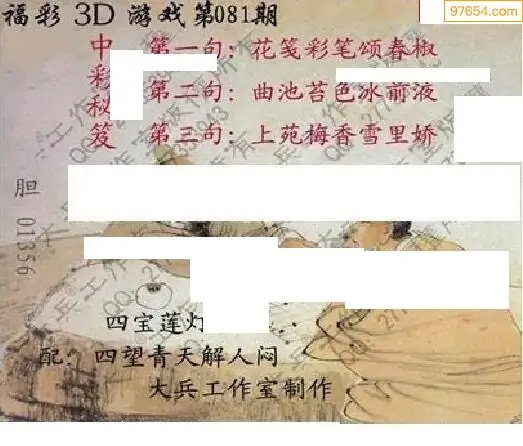 97654.com
福彩 3D 游戏第081期
中彩秘笈
第一句：花笺彩笔颂春椒
第二句：曲池苔色冰前液
第三句：上苑梅香雪里娇
胆 01356
四宝莲灯
配：四望青天解人闷
大兵工作室制作